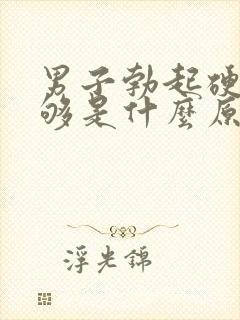 男子勃起硬
够是什麼原
浮光锦